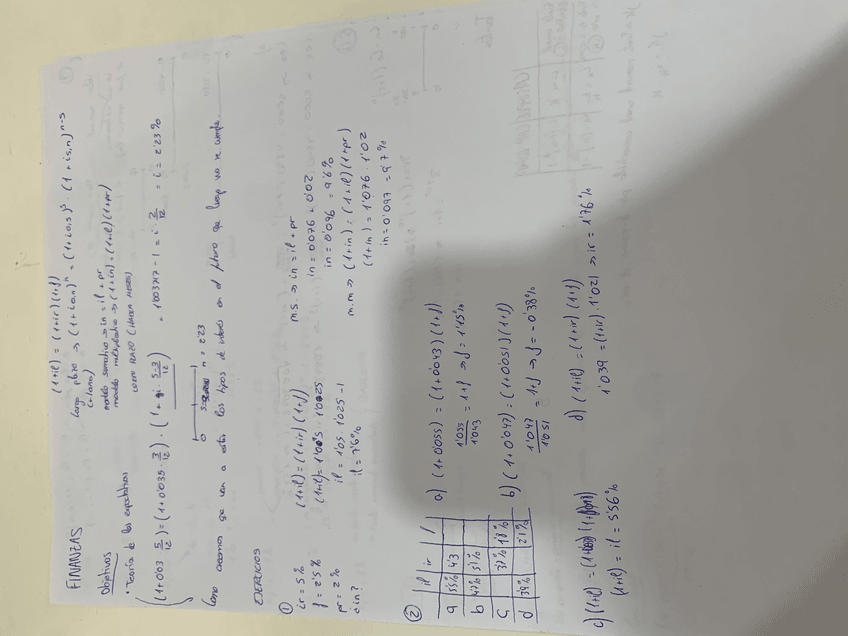 FINANZAS
(1+il) = (1+ir)(1+f)
Objetivos
Largo plazo → (1+i0,n)ⁿ = (1+i0,s)ˢ · (1+is,n)ⁿ⁻ˢ
(+1año)
• Teoría de las expectativas
modelo sumativo → in = il + pr
modelo multiplicativo → (1+in) = (1+il)(1+pr)
CORTO PLAZO
(1+0'03 5/12) = (1+0'035 · 3/12) · (1+ i · 5-3/12)
= 1'003717 - 1 = i · 2/12 = i = 2'23%
0 s n = 2'23
Como creemos que van a estar los tipos de interés en el futuro que luego no se cumple.
EJERCICIOS
①
ir = 5%
f = 2'5%
pr = 2%
¿in?
(1+il) = (1+ir)(1+f)
(1+il) = 1'05 · 1'025
il = 1'05 · 1'025 - 1
il = 7'6%
m.s. → in = il + pr
in = 0'076 + 0'02
in = 0'096 = 9'6%
m.m → (1+in) = (1+il)(1+pr)
(1+in) = 1'076 · 1'02
in = 0'097 = 9'7%
②
il ir f
a 5'5% 4'3
b 4'7% 5'1%
c 3'7% 1'8%
d 3'9% 2'1%
a) (1+0'055) = (1+0'043)(1+f)
1'055/1'043 = 1+f → f = 1'15%
b) (1+0'047) = (1+0'051)(1+f)
1'047/1'051 = 1+f → f = -0'38%
c) (1+il) =
(1+il) = il = 5'56%
d) (1+il) = (1+ir)(1+f)
1'039 = (1+ir) · 1'021 → ir = 1'76%